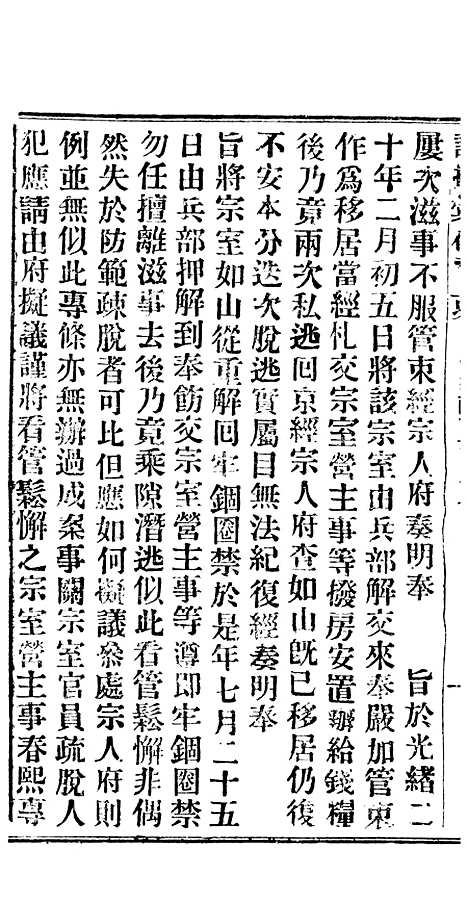 屢次滋事不服管束經宗人府奏明奉　旨於光緒二
十年二月初五日將該宗室由兵部解交來奉嚴加管束
作爲移居當經札交宗室營主事等撥房安置辦給錢糧
後乃竟兩次私逃回京經宗人府查如山旣已移居仍復
不安本分迭次脫逃實屬目無法紀復經奏明奉
旨將宗室如山從重解回牢錮圈禁於是年七月二十五
日由兵部押解到奉飭交宗室營主事等遵即牢錮圈禁
勿任擅離滋事去後乃竟乘隙潛逃似此看管鬆懈非偶
然失於防範疎脫者可比但應如何擬議叅處宗人府則
例並無似此專條亦無辦過成案事關宗室官員疏脫人
犯應請由府擬議謹將看管鬆懈之宗室營主事春熙專